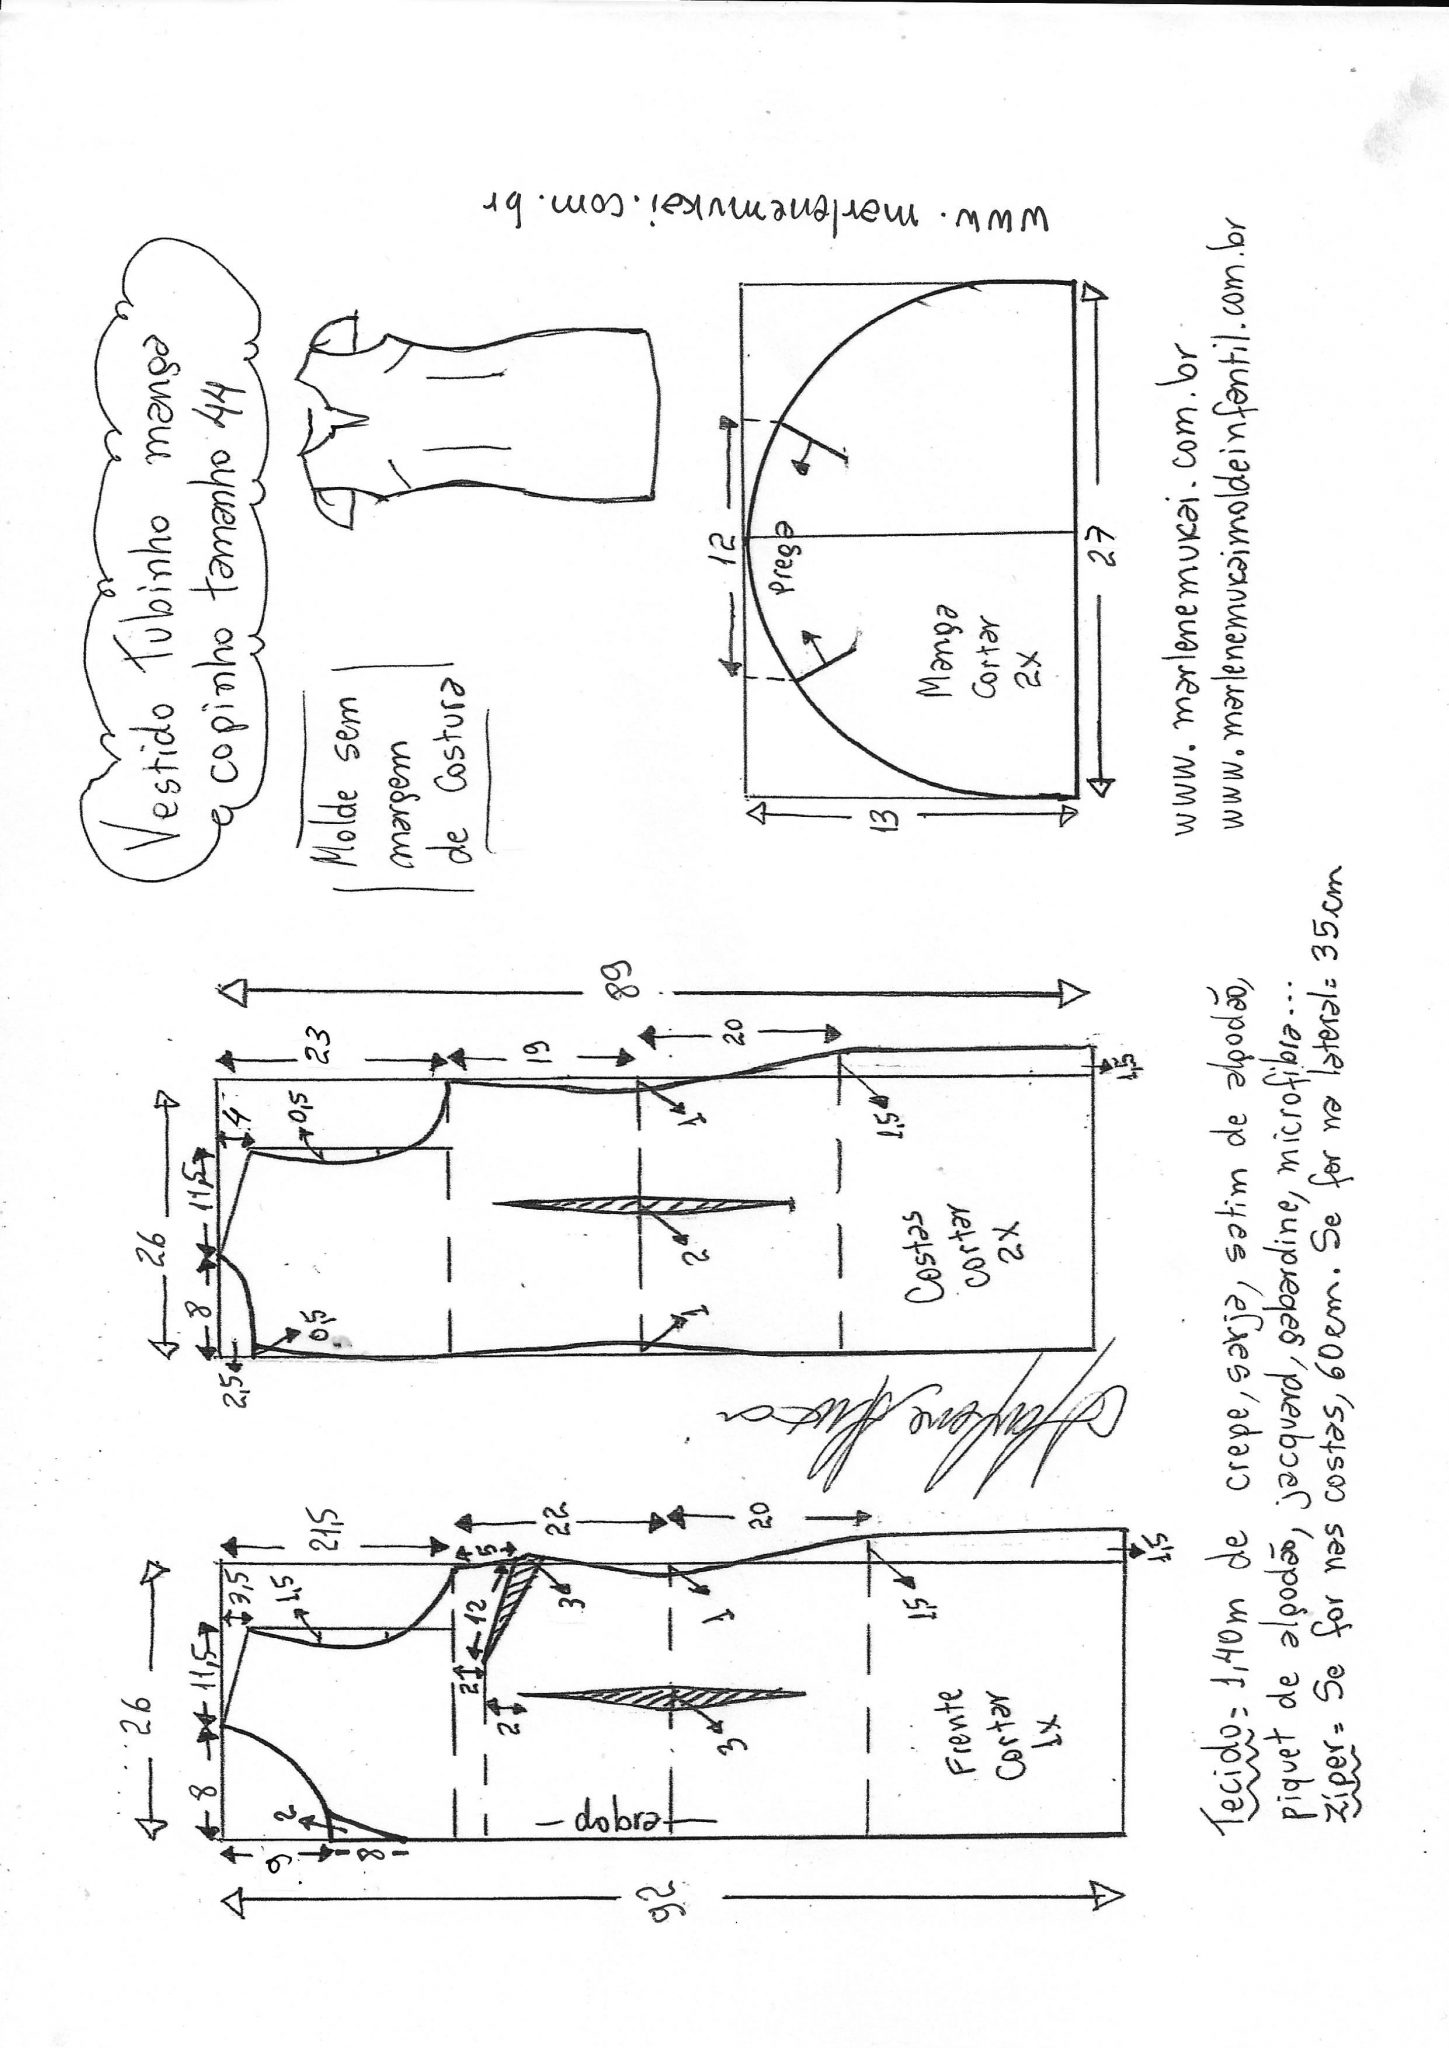 Vestido Tubinho manga
copinho tamanho 44
Molde sem
margem
de Costura
www.marlenemukai.com.br
26
8
11,5
3,5
21,5
1,5
9
8
2
5
12
3
2
2
22
1
20
1,5
3
dobra
Frente
Cortar
1x
1,5
92
26
8
11,5
4
23
0,5
2,5
0,5
19
1
2
1
20
1,5
Costas
Cortar
2x
1,5
89
12
Prega
Manga
Cortar
2x
13
27
www.marlenemukai.com.br
www.marlenemukaimoldeinfantil.com.br
Tecido= 1,40m de crepe, sarja, satim de algodão,
piquet de algodão, jacquard, gabardine, microfibra...
Zíper= Se for nas costas, 60cm. Se for na lateral= 35cm